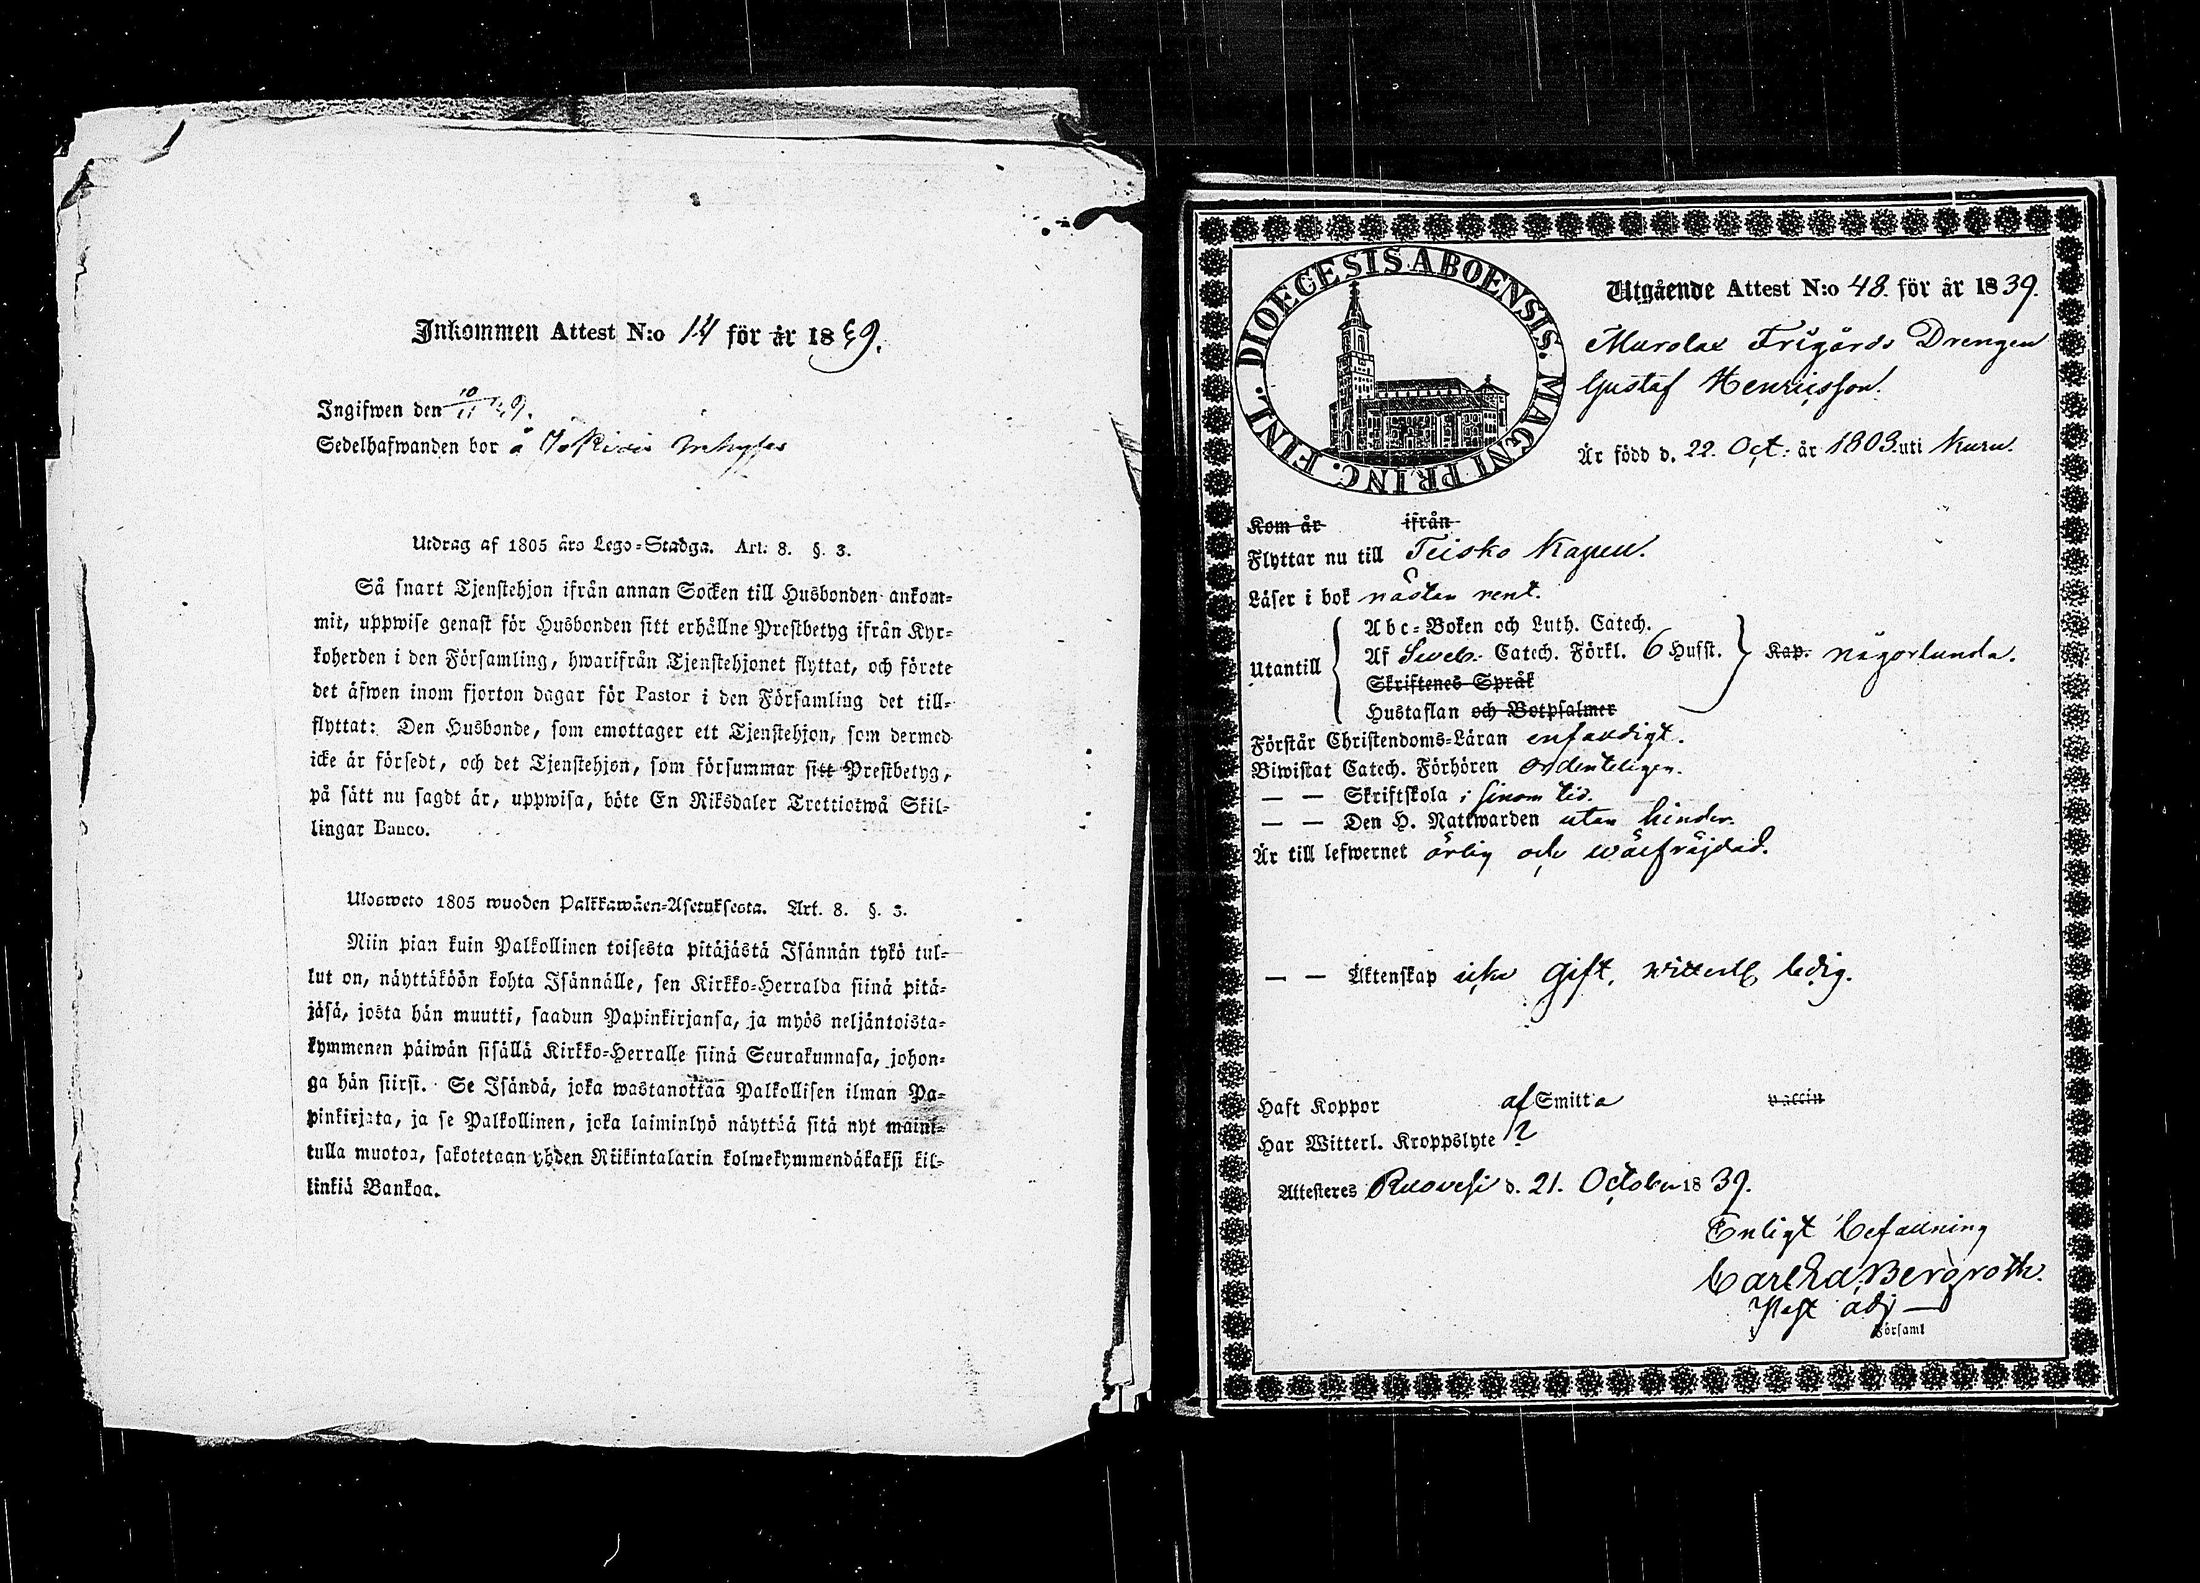 Inkommen Attest N:o 14 för år 1839.
Ingifwen den 10/11 39.
Sedelhafwanden bor å
Utdrag af 1805 års Lego-Stadga. Art: 8. §. 3.
Så snart Tjenstehjon ifrån annan Socken till Husbonden ankom-
mit, uppwise genast för Husbonden sitt erhållne Prestbetyg ifrån Kyr-
koherden i den Församling, hwarifrån Tjenstehjonet flyttat, och förete
det äfwen inom fjorton dagar för Pastor i den Församling det till-
flyttat: Den Husbonde, som emottager ett Tjenstehjon, som dermed
icke är försedt, och det Tjenstehjon, som försummar sitt Prestbetyg,
på sätt nu sagdt är, uppwisa, böte En Riksdaler Trettiotwå Skil-
lingar Banco.
Ulosweto 1805 wuoden Palkkawäen-Asetuksesta. Art. 8. §. 3.
Niin pian kuin Palkollinen toisesta pitäjästä Isännän tykö tul-
lut on, näyttäköön kohta Isännälle, sen Kirkko-Herralda siinä pitä-
jäsä, josta hän muutti, saadun Papinkirjansa, ja myös neljäntoista-
kymmenen päiwän sisällä Kirkko-Herralle siinä Seurakunnasa, johon-
ga hän siirsi. Se Isändä, joka wastanottaa Palkollisen ilman Pa-
pinkirjata, ja se Palkollinen, joka laiminlyö näyttää sitä nyt maini-
tulla muotoa, sakotetaan yhden Riikintalarin kolmekymmendäkaksi kil-
linkiä Bankoa.
DIOECESIS ABOENSIS. MAGNI PRINC. FINL.
Utgående Attest N:o 48. för år 1839.
Murolax Frigårds Drengen
Gustaf Henricsson.
Är född d. 22. Oct: år 1803. uti Kuru.
Kom år ifrån
Flyttar nu till Teisko Kapell.
Läser i bok nästan rent.
Utantill
Abc-Boken och Luth. Catech.
Af Sveb. Catech. Förkl. 6 Hufst. Kap. någorlunda.
Skriftenes Språk
Hustaflan och Botpsalmer
Förstår Christendoms-Läran enfaldigt.
Biwistat Catech. Förhören ordenteligen.
— — Skriftskola i sinom tid.
— — Den H. Nattwarden utan hinder.
Är till lefwernet ärlig och wälfräjdad.
— — Äktenskap icke gift, witterl. ledig.
Haft Koppor af Smitta vaccin
Har Witterl. Kroppslyte
Attesteres Ruovesi d. 21. October 1839.
Enligt befallning
Carl Ed. Bergroth.
Past adj
Församl